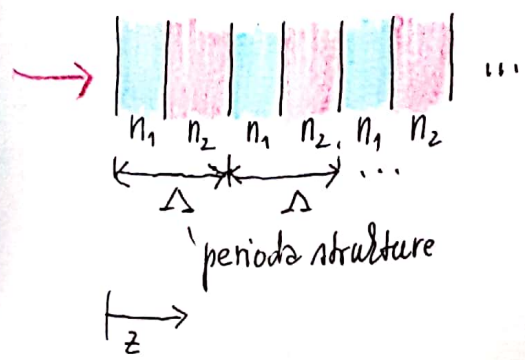 ...
n₁ n₂ n₁ n₂ n₁ n₂
Λ Λ ...
perioda strukture
z